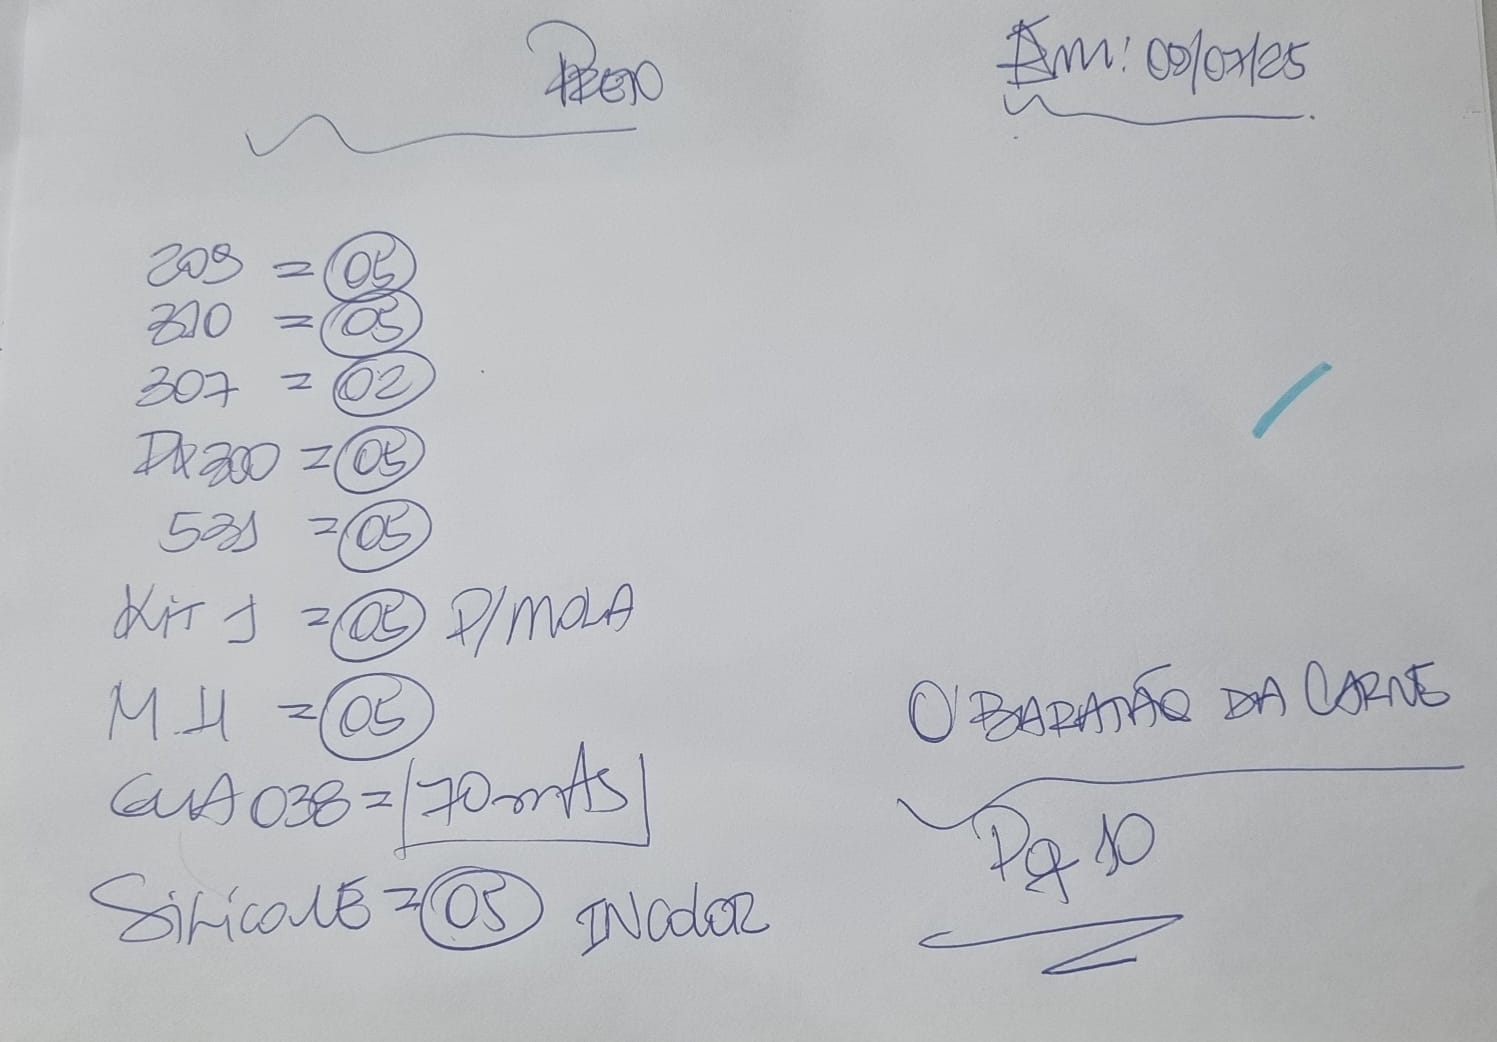 Em: 09/07/25
209 = 05
310 = 05
307 = 02
DX 300 = 05
531 = 05
Kit 1 = 05 P/MOLA
M.H = 05
038 = 70 mts
Silicone = 05 INcoloR
O BARATÃO DA CARNE
Pq 10